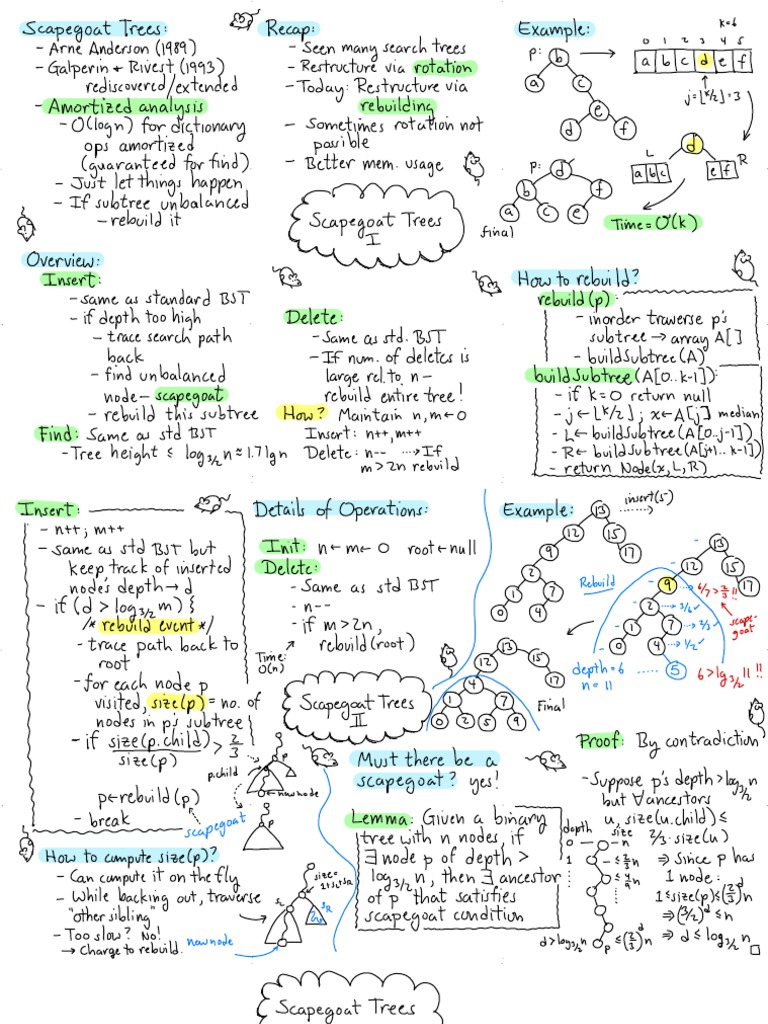 Scapegoat Trees:
- Arne Anderson (1989)
- Galperin + Rivest (1993)
rediscovered/extended
- Amortized analysis
- O(log n) for dictionary
ops amortized
(guaranteed for find)
- Just let things happen
- If subtree unbalanced
- rebuild it
Recap:
- Seen many search trees
- Restructure via rotation
- Today: Restructure via
rebuilding
- Sometimes rotation not
possible
- Better mem. usage
Scapegoat Trees
I
Example:
p:
b
a
c
e
d
f
k=6
0 1 2 3 4 5
a b c d e f
j=⌊k/2⌋=3
d
L
R
a b c
e f
p:
d
b
f
a
c
e
final
Time = O(k)
Overview:
Insert:
- same as standard BST
- if depth too high
- trace search path
back
- find unbalanced
node - scapegoat
- rebuild this subtree
Find: Same as std BST
- Tree height ≤ log3/2 n ≈ 1.7 lg n
Delete:
- Same as std. BST
- If num. of deletes is
large rel. to n -
rebuild entire tree!
How? Maintain n, m ← 0
Insert: n++, m++
Delete: n-- ⇢ If
m > 2n rebuild
How to rebuild?
rebuild(p)
- inorder traverse p's
subtree → array A[]
- buildSubtree(A)
buildSubtree(A[0..k-1]):
- if k=0 return null
- j ← ⌊k/2⌋; x ← A[j] median
- L ← buildSubtree(A[0..j-1])
- R ← buildSubtree(A[j+1..k-1])
- return Node(x, L, R)
Insert:
- n++; m++
- same as std BST but
keep track of inserted
node's depth → d
- if (d > log3/2 m) {
/* rebuild event */
- trace path back to
root
- for each node p
visited, size(p) = no. of
nodes in p's subtree
- if size(p.child)/size(p) > 2/3
p ← rebuild(p)
- break
p
p.child
new node
scapegoat
p
Details of Operations:
Init: n ← m ← 0 root ← null
Delete:
- Same as std BST
- n--
- if m > 2n,
rebuild(root)
Time:
O(n)
Scapegoat Trees
II
Example:
insert(5)
13
12
15
9
17
2
1
7
0
4
13
12
15
9
17
6/7 > 2/3 !!
2
3/6 ✓
scape-
goat
1
7
2/3 ✓
0
4
1/2 ✓
5
Rebuild
depth = 6
n = 11
6 > lg3/2 11 !!
13
12
15
17
4
1
7
0
2
5
9
Final
How to compute size(p)?
- Can compute it on the fly
- While backing out, traverse
"other sibling"
- Too slow? No!
→ Charge to rebuild.
size=
1+sL+sR
sL
sR
new node
Must there be a
scapegoat? yes!
Lemma: Given a binary
tree with n nodes, if
∃ node p of depth >
log3/2 n, then ∃ ancestor
of p that satisfies
scapegoat condition
Proof: By contradiction
- Suppose p's depth > log3/2 n
but ∀ ancestors
u, size(u.child) ≤
2/3·size(u)
⇒ Since p has
1 node:
1 ≤ size(p) ≤ (2/3)^d n
⇒ (3/2)^d ≤ n
⇒ d ≤ log3/2 n
□
depth
size
0
n
1
≤ 2/3 n
≤ 4/9 n
d > log3/2 n
p
≤ (2/3)^d n
Scapegoat Trees